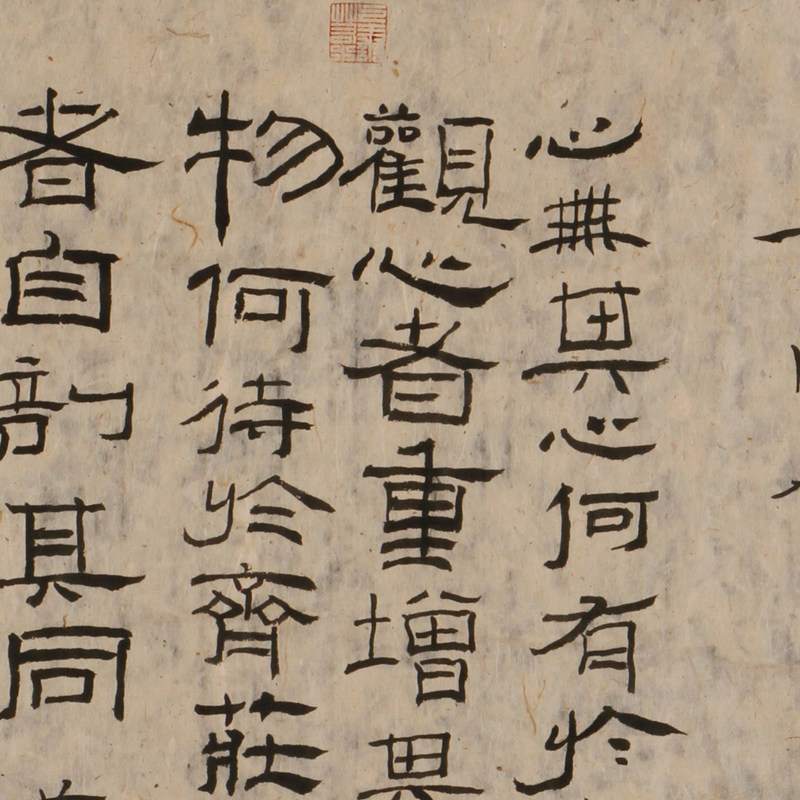 心無其心何有於
觀心者重增其
物何待於齊莊
者自剖其同